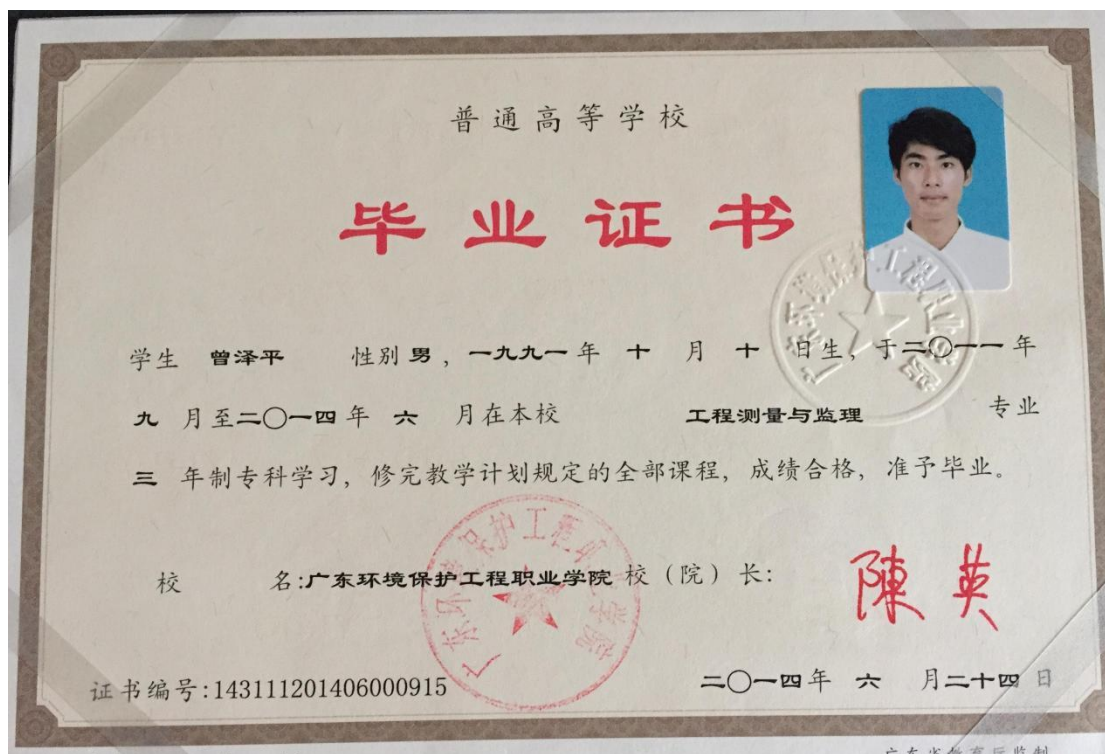 普通高等学校
毕业证书
学生 曾泽平 性别 男，一九九一 年 十 月 十 日生，于二〇一一 年
九 月至二〇一四 年 六 月在本校 工程测量与监理 专业
三 年制专科学习，修完教学计划规定的全部课程，成绩合格，准予毕业。
校 名:广东环境保护工程职业学院 校（院）长:
陳英
广东环境保护工程职业学院
广东环境保护工程职业学院
证书编号:143111201406000915
二〇一四年 六 月二十四日
广东省教育厅监制